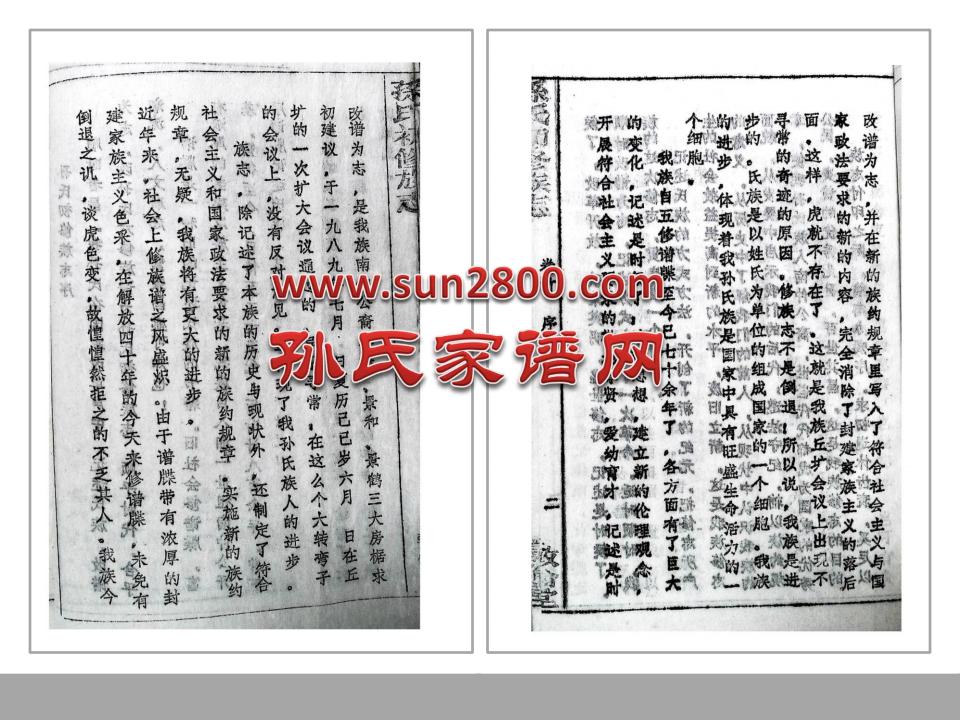 孫氏初修族志
改谱为志,是我族南
公裔
景和
景鹤三大房椐求
初建议,于一九八九
七月
夏历己巳岁六月
日在丘
扩的一次扩大会议通
的
常,在这么个六转弯子
的会议上,没有反对
见。
现了我孙氏族人的进步。
族志,除记述了本族的历史与现状外,还制定了符合
社会主义和国家政法要求的新的族约规章,实施新的族约
规章,无疑,我族将有更大的进步。
近年来,社会上修族谱之风盛炽。由于谱牒带有浓厚的封
建家族主义色采,在解放四十年的今天来修谱牒,未免有
倒退之讥,谈虎色变,故惶惶然拒之的不乏其人。我族今
改谱为志,并在新的族约规章里写入了符合社会主义与国
家政法要求的新的内容,完全消除了封建家族主义的落后
面,这样,虎就不存在了,这就是我族丘扩会议上出现不
寻常的奇迹的原因,修族志不是倒退!所以说,我族是进
步的,氏族是以姓氏为单位的组成国家的一个细胞,我族
的进步,体现着我孙氏族是国家中具有旺盛生命活力的一
个细胞。
我族自五修谱牒至今已七十余年了,各方面有了巨大
的变化,记述是时
想,建立新的伦理观念,
开展符合社会主义
求的
贤,爱幼育才,记述是时
孫氏初修族志
序
二
www.sun2800.com
孙氏家谱网